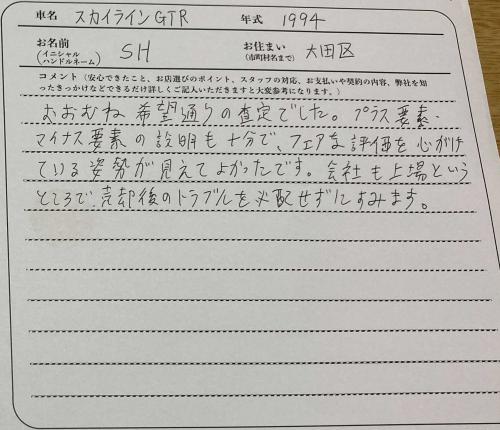 車名 スカイラインGTR 年式 1994
お名前 (イニシャル ハンドルネーム) SH お住まい (市町村名まで) 大田区
コメント（安心できたこと、お店選びのポイント、スタッフの対応、お支払いや契約の内容、弊社を知
ったきっかけなどできるだけ詳しくご記入いただきますと大変参考になります。）
おおむね希望通りの査定でした。プラス要素・
マイナス要素の説明も十分で、フェアな評価を心がけ
ている姿勢が見えてよかったです。会社も上場という
ところで、売却後のトラブルを心配せずにすみます。